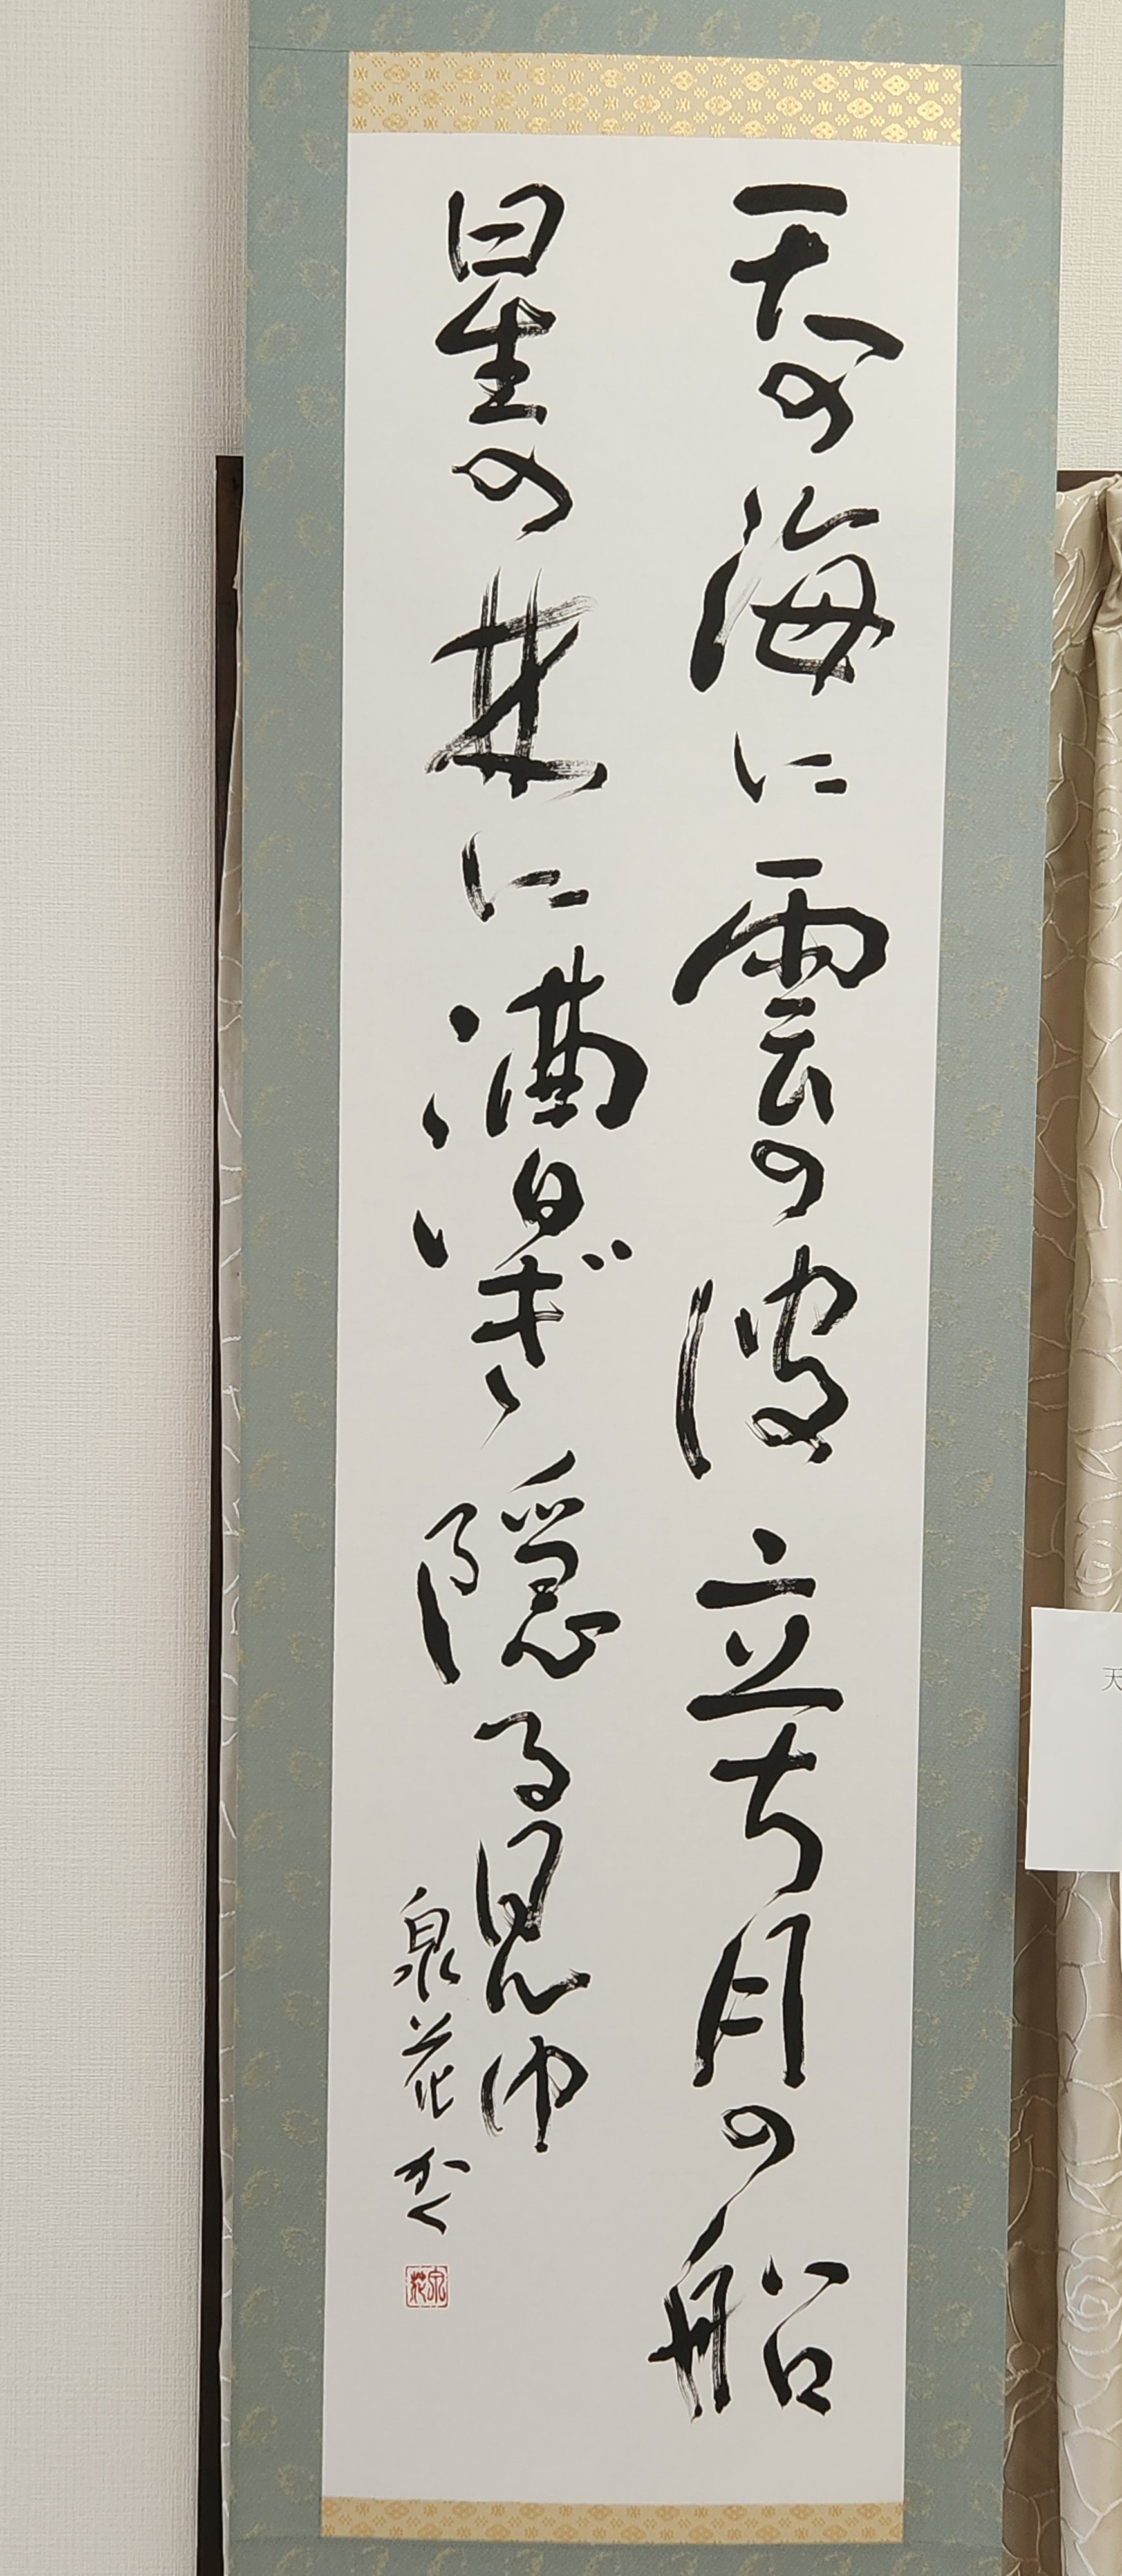 天の海に雲の波立ち月の船
星の林に漕ぎ隠る見ゆ
泉花かく
泉花
天